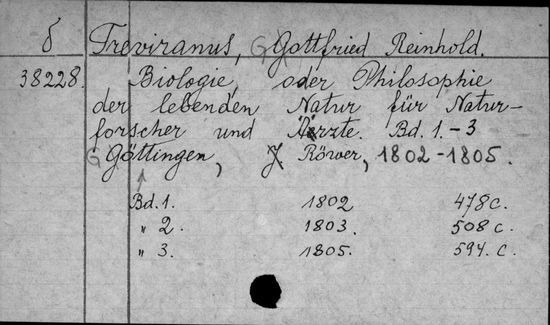 δ Treviranus, Gottfried Reinhold.
38228. Biologie, oder Philosophie
der lebenden Natur für Natur-
forscher und Ärzte. Bd. 1.-3
Göttingen, J. Röwer, 1802-1805.
Bd. 1. 1802 478 c.
" 2. 1803. 508 c.
" 3. 1805. 594. c.